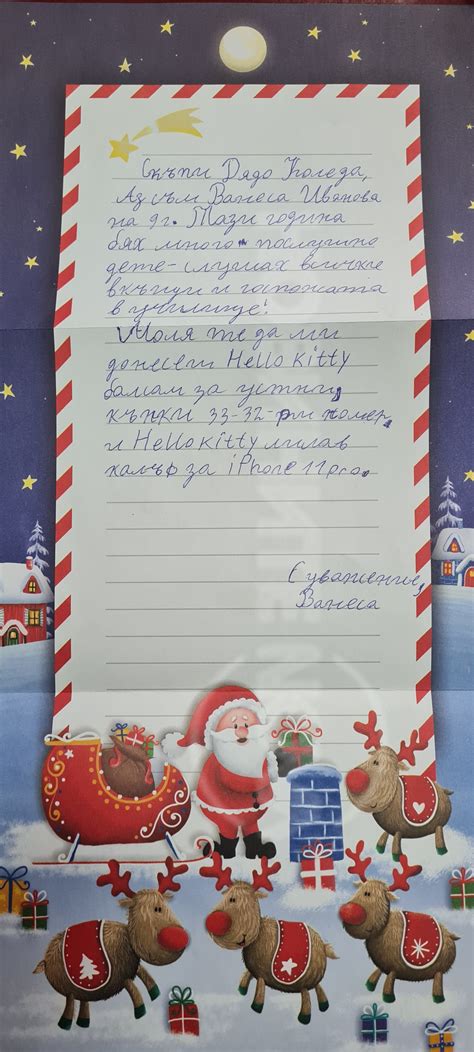 Скъпи Дядо Коледа,
Аз съм Ванеса Иванова
на 9г. Тази година
бях много послушно
дете - слушах всички
вкъщи и госпожата
в училище!
Моля те да ми
донесеш Hello Kitty
балсам за устни,
кънки 33-32-ри номер,
и Hello Kitty лилав
калъф за iPhone 11 pro.
С уважение,
Ванеса